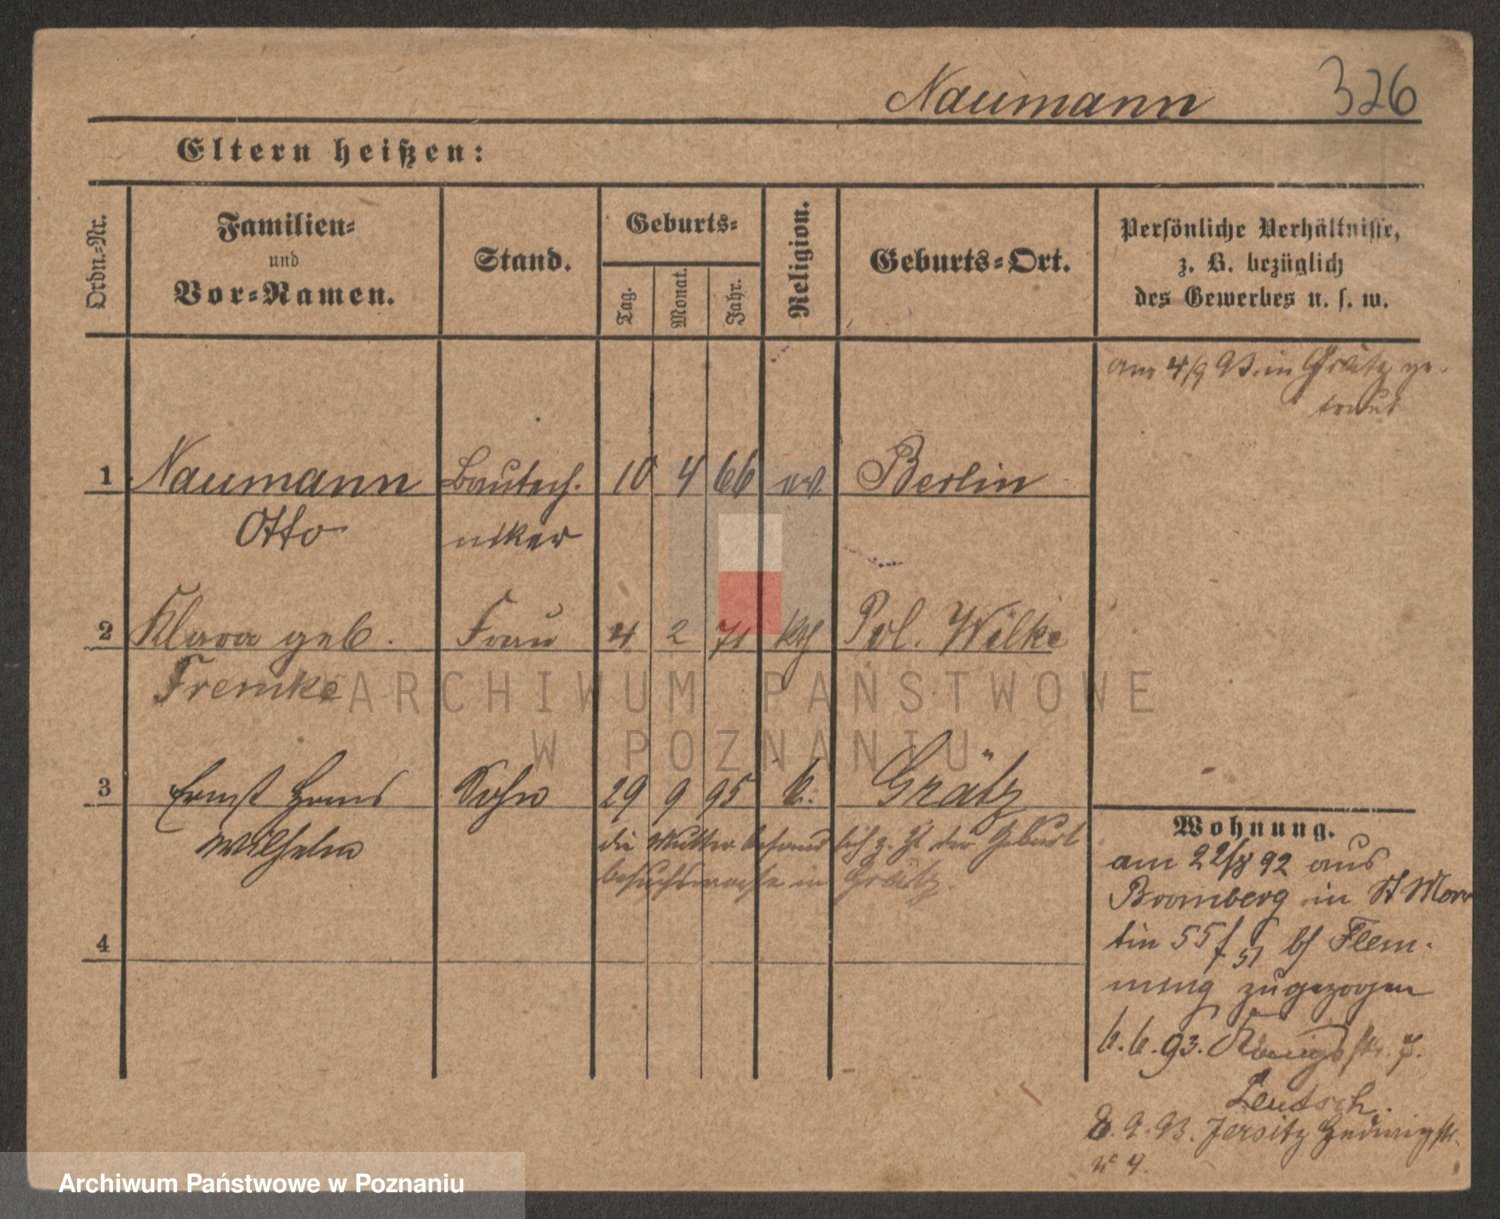 Naumann 326
Eltern heißen:
Ordn.-Nr.
Familien-
und
Vor-Namen.
Stand.
Geburts-
Tag.
Monat.
Jahr.
Religion.
Geburts-Ort.
Persönliche Verhältnisse,
z. B. bezüglich
des Gewerbes u. s. w.
am 4/9 93 in Grätz ge-
traut
1 Naumann Bautech- 10 4 66 ev Berlin
Otto niker
2 Klara geb. Frau 4 2 71 kth Pol. Wilke
Fremke
3 Ernst Hans Sohn 29 9 95 k. Grätz
Wilhelm
die Mutter befand sich z. Zt der Geburt
besuchsweise in Grätz.
4
Wohnung.
am 22/8 92 aus
Bromberg in St Mar-
tin 55 51 bh Flem-
ming zugezogen
6.6.93. Königsstr. 7.
Leutsch.
8.9.93. Jersitz Hedwigstr.
4.
ARCHIWUM PAŃSTWOWE
W POZNANIU
Archiwum Państwowe w Poznaniu